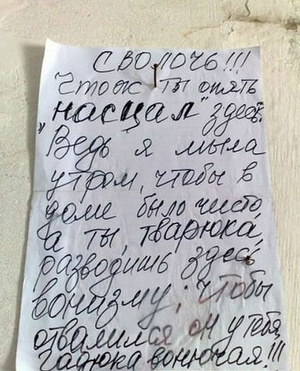 СВОЛОЧЬ!!!
Что ж ты опять
"насцал" здесь.
Ведь я мыла
утром, чтобы в
доме было чисто,
а ты тварюка,
разводишь здесь
вонизму; чтобы
отвалился он у тебя,
гадюка вонючая.!!!